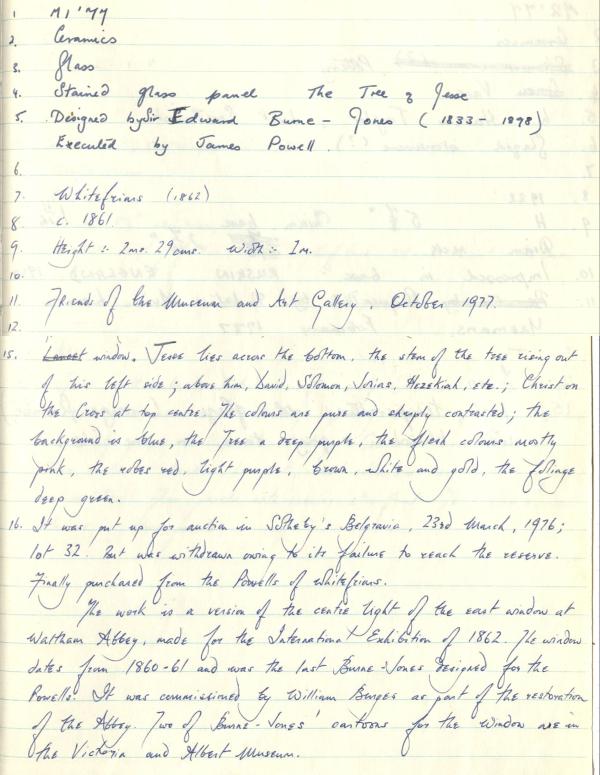 1 M1'77
2. Ceramics
3. Glass
4. Stained glass panel The Tree of Jesse
5. Designed by Sir Edward Burne-Jones (1833-1898)
Executed by James Powell.
6.
7. Whitefriars (1862)
8 c. 1861
9. Height :- 2ms. 29cms. Width :- 1m.
10.
11 Friends of the Museum and Art Gallery, October 1977.
12.
15. Lancet window. Jesse lies across the bottom, the stem of the tree rising out
of his left side; above him, David, Solomon, Josias, Hezekiah, etc.; Christ on
the Cross at top centre. The colours are pure and sharply contrasted; the
background is blue, the Tree a deep purple, the flesh colours mostly
pink, the robes red, light purple, brown, white and gold, the foliage
deep green.
16. It was put up for auction in Sotheby's Belgravia, 23rd March, 1976;
lot 32. But was withdrawn owing to its failure to reach the reserve.
Finally purchased from the Powells of Whitefriars.
The work is a version of the centre light of the east window at
Waltham Abbey, made for the International Exhibition of 1862. The window
dates from 1860-61 and was the last Burne-Jones designed for the
Powells. It was commissioned by William Burges as part of the restoration
of the Abbey. Two of Burne-Jones' cartoons for the window are in
the Victoria and Albert Museum.